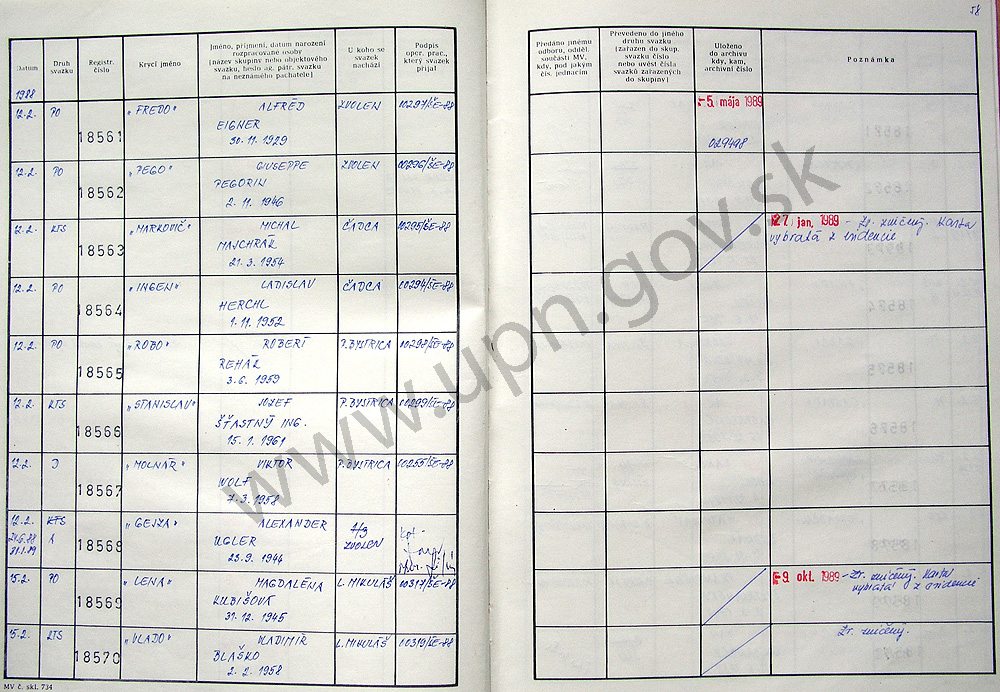 58
Datum
Druh svazku
Registr. číslo
Krycí jméno
Jméno, příjmení, datum narození
rozpracované osoby
(název skupiny nebo objektového
svazku, heslo ag. pátr. svazku
na neznámého pachatele)
U koho se
svazek
nachází
Podpis
oper. prac.,
který svazek
přijal
Předáno jinému
odboru, odděl.
součásti MV,
kdy, pod jakým
čís. jednacím
Převedeno do jiného
druhu svazku
(zařazen do skup.
svazku číslo
nebo uvést čísla
svazků zařazených
do skupiny)
Uloženo
do archivu
kdy, kam,
archivní číslo
Poznámka
1988
12.2. PO 18561 "FREDO" ALFRÉD ZVOLEN 00297/ŠE-88 5. mája 1989
EIGNER
30.11.1929 029498
12.2. PO 18562 "PEGO" GIUSEPPE ZVOLEN 00296/ŠE-88
PEGORIN
2.11.1946
12.2. KTS 18563 "MARKOVIČ" MICHAL ČADCA 00295/ŠE-88 27. jan. 1989 - Zv. zničený. Karta
MAJCHRÁK vybratá z evidencie
21.3.1954
12.2. PO 18564 "INGEN" LADISLAV ČADCA 00294/ŠE-88
HERCHL
1.11.1952
12.2. PO 18565 "ROBO" ROBERT P.BYSTRICA 00298/ŠE-88
REHÁK
3.6.1959
12.2. KTS 18566 "STANISLAV" JOZEF P.BYSTRICA 00299/ŠE-88
ŠŤASTNÝ ING.
15.1.1961
12.2. D 18567 "MOLNÁR" VIKTOR P.BYSTRICA 00255/ŠE-88
WOLF
7.3.1958
12.2. KTS 18568 "GEJZA" ALEXANDER ZVOLEN
UGLER
23.9.1944
15.2. PO 18569 "LENA" MAGDALÉNA L. MIKULÁŠ 00317/ŠE-88 9. okt. 1989 - Zv. zničený. Karta
KUBIŠOVÁ vybratá z evidencie
31.12.1945
15.2. KTS 18570 "VLADO" VLADIMÍR L. MIKULÁŠ 00319/ŠE-88 Zv. zničený.
BLAŠKO
2.2.1958
MV č. skl. 734
www.upn.gov.sk